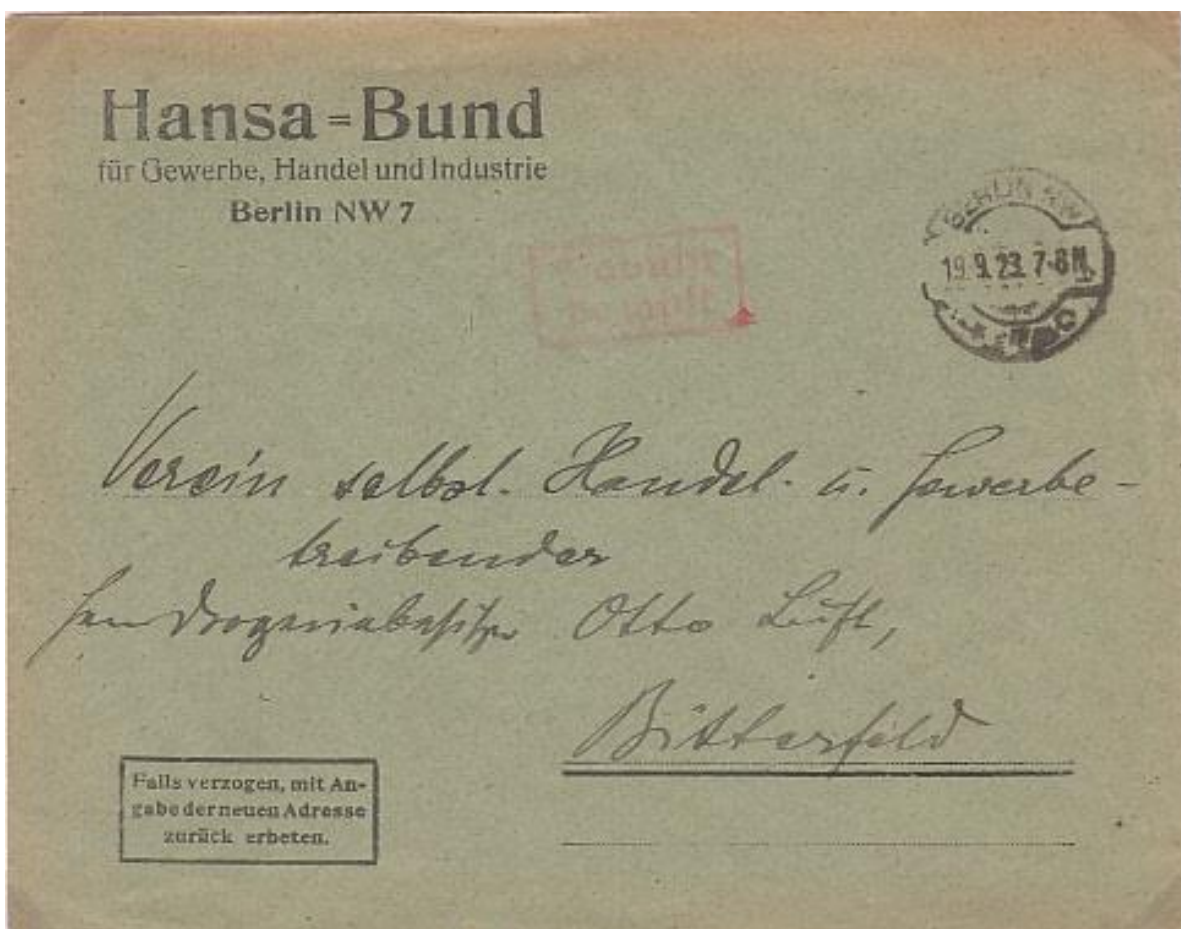 Hansa=Bund
für Gewerbe, Handel und Industrie
Berlin NW 7
BERLIN NW
19.9.23. 7-8 N.
Verein selbst. Handel- u. Gewerbe-
treibender
Herrn Drogeriebesitzer Otto Luft,
Bitterfeld
Falls verzogen, mit An-
gabe der neuen Adresse
zurück erbeten.